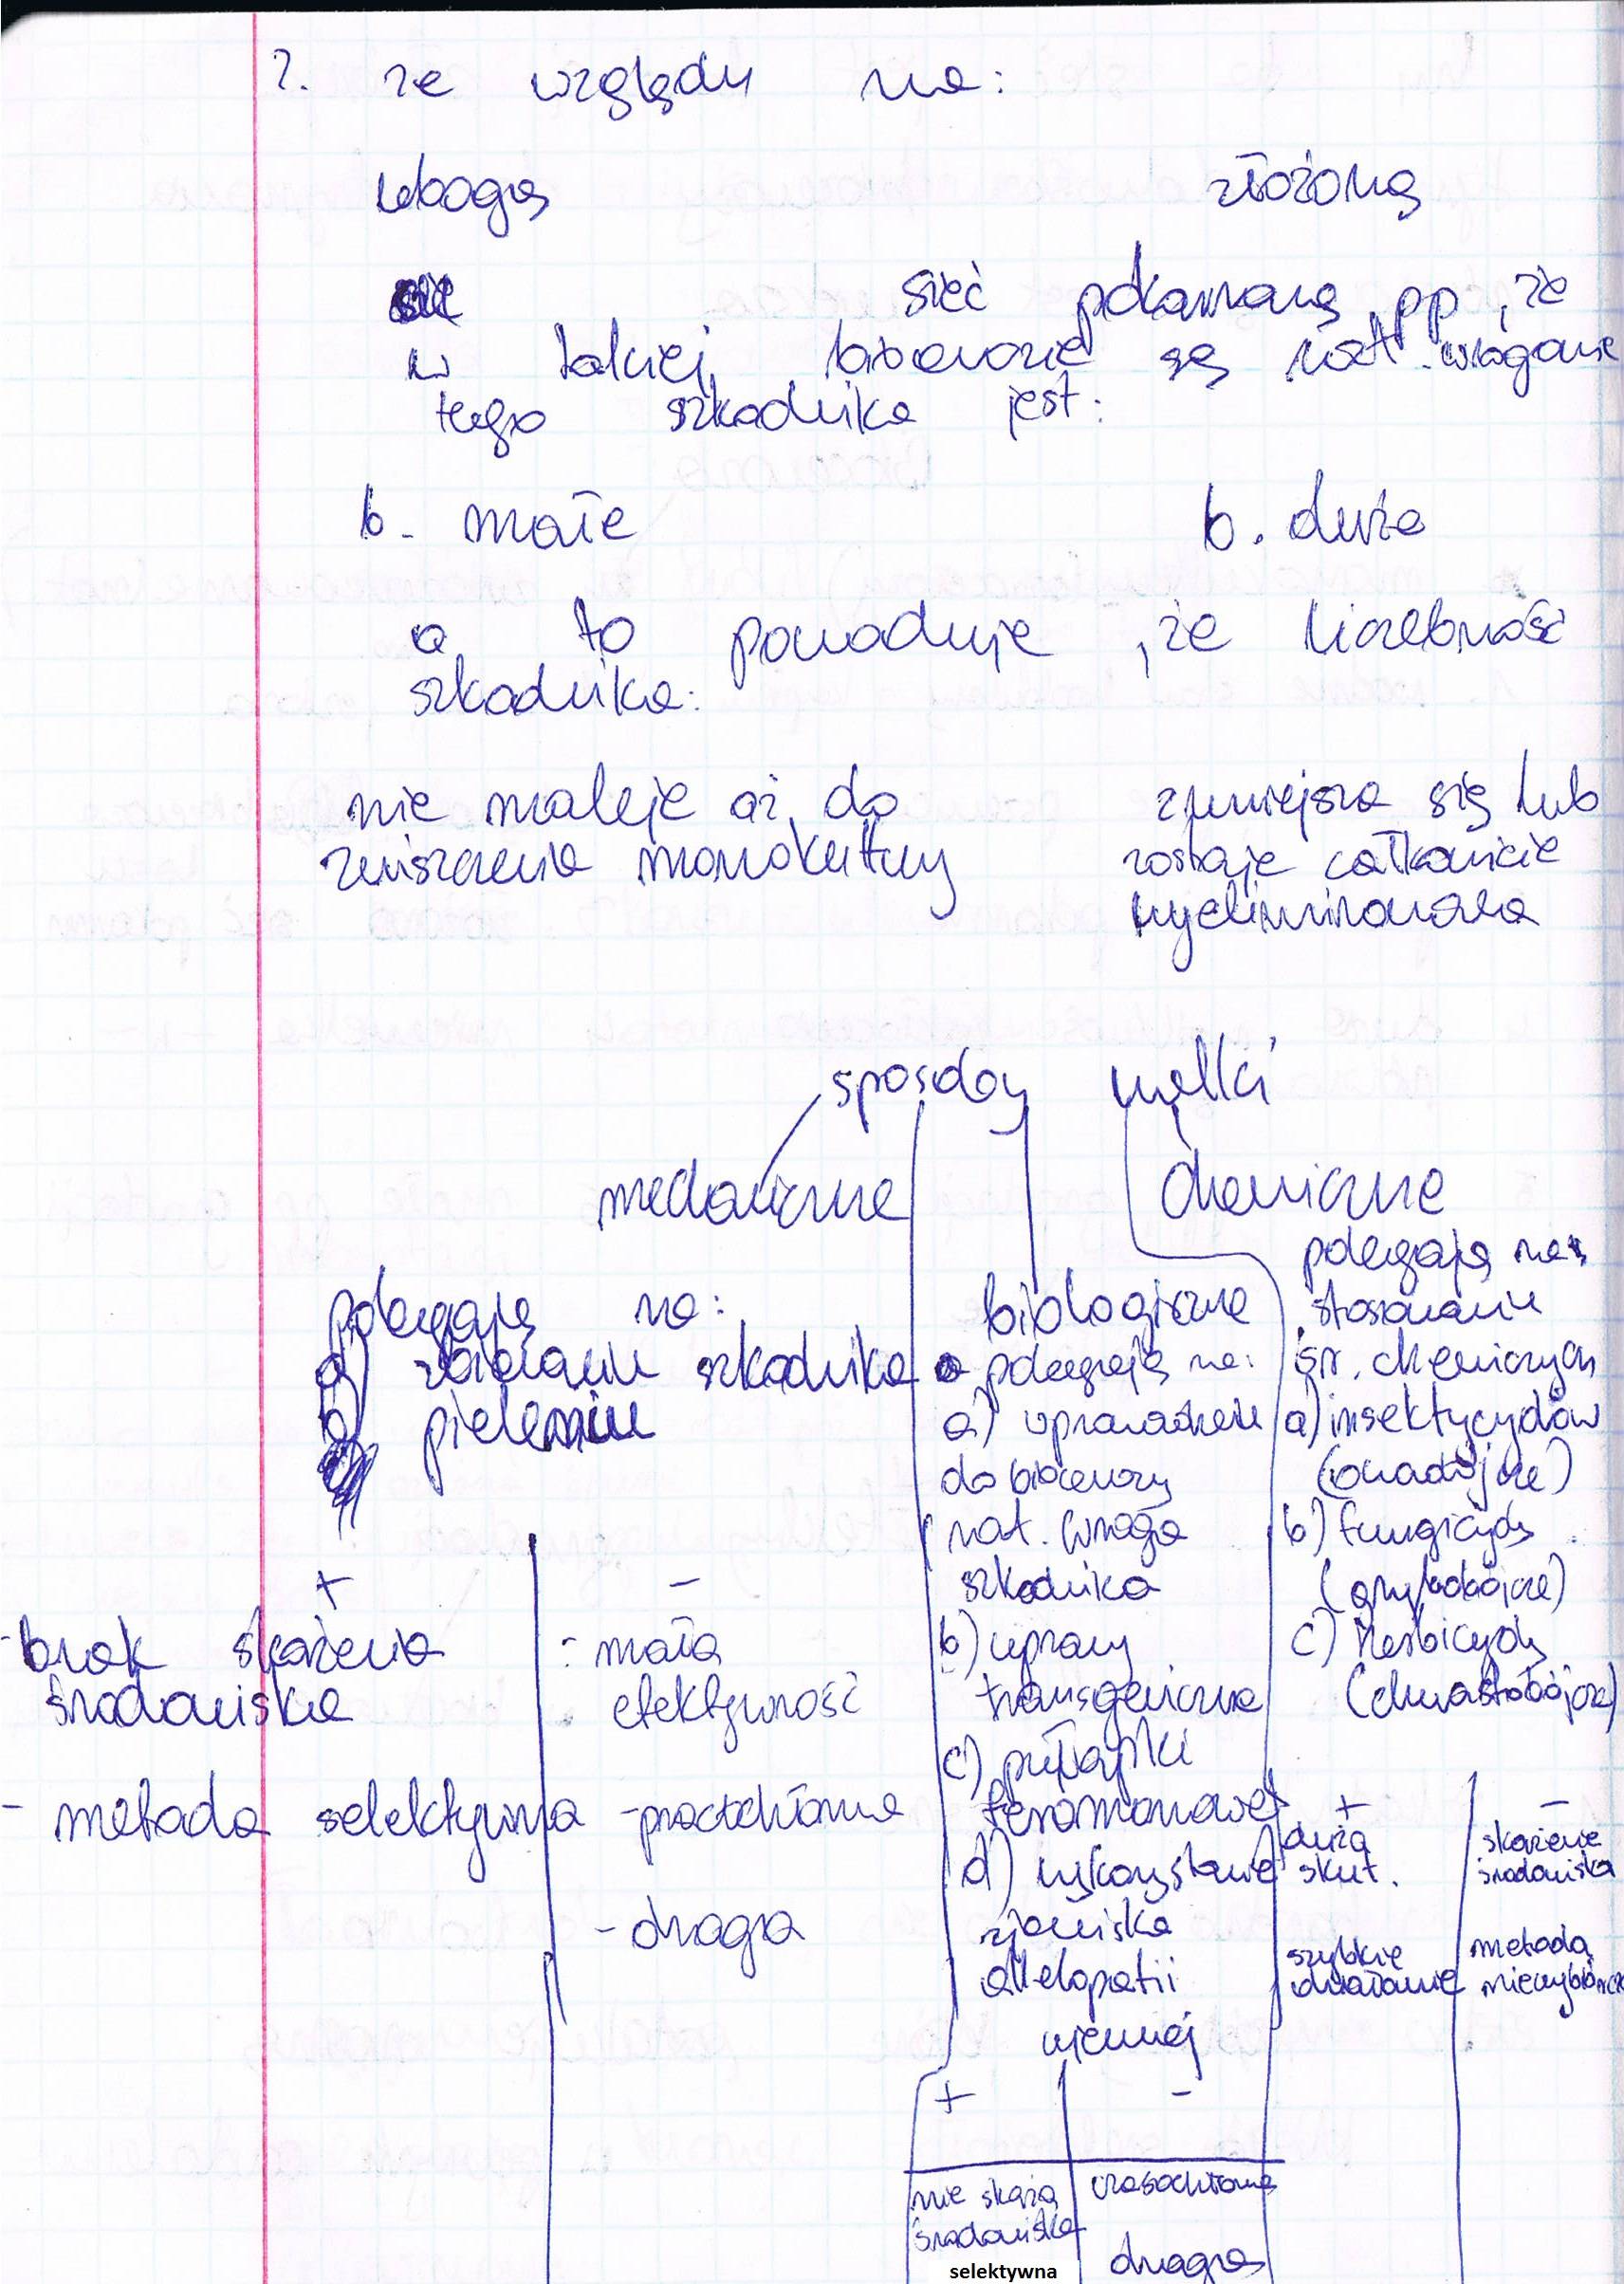 2. ze względu na:
ubogą złożoną
sieć pokarmową pp, że
w takiej biocenozie są nat. wrogowie
tego szkodnika jest:
b. małe b. duża
a to powoduje, że liczebność
szkodnika:
nie maleje aż do
zniszczenia monokultury
zmniejsza się lub
zostaje całkowicie
wyeliminowana
sposoby walki
mechaniczne
polegają na:
a) zbieraniu szkodnika
b) pieleniu
+ -
- brak skażenia
środowiska
- metoda selektywna
- mała
efektywność
- pracochłonna
- droga
biologiczne
polegają na:
a) wprowadzeniu
do biocenozy
nat. wroga
szkodnika
b) uprawy
transgeniczne
c) pułapki
feromonowe
d) wykorzystanie
zjawiska
allelopatii
ujemnej
+ -
nie skaża
środowiska
selektywna
czasochłonna
droga
chemiczne
polegają na
stosowaniu
śr. chemicznych
a) insektycydów
(owadobójcze)
b) fungicydy
(grzybobójcze)
c) herbicydy
(chwastobójcze)
+ -
duża
skut.
szybkie
działanie
skażenie
środowiska
metoda
niewybiórcza